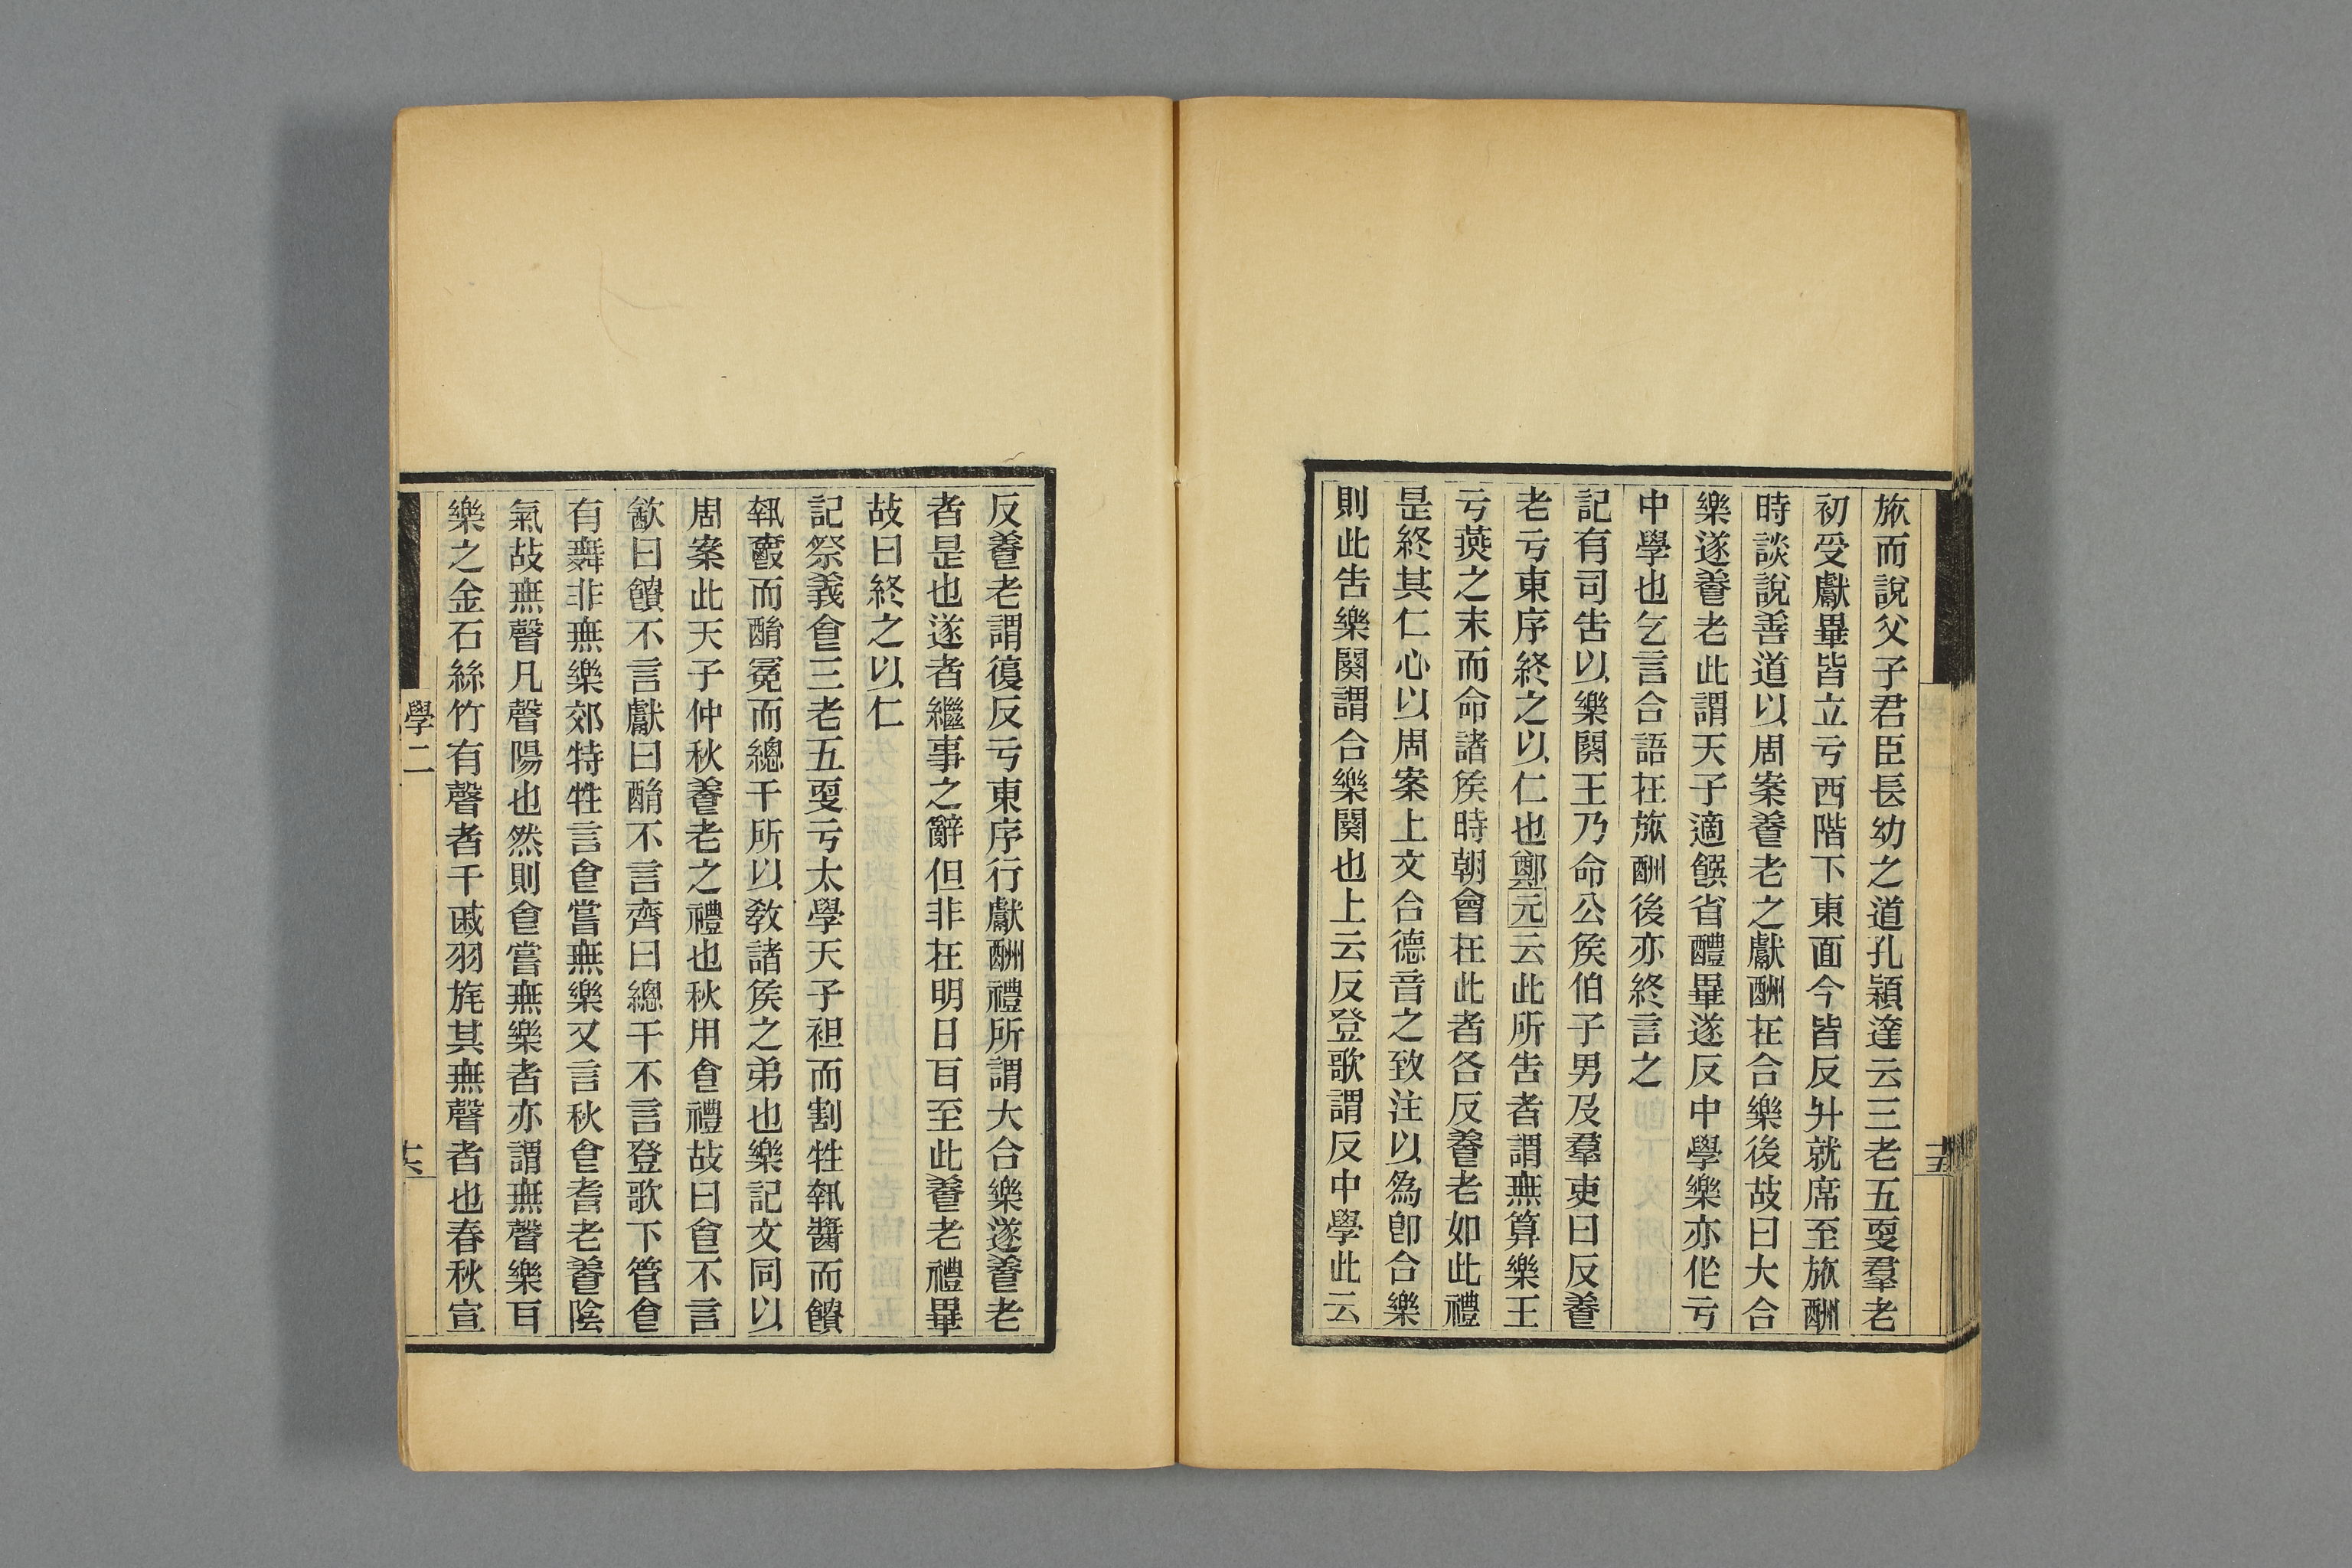 旅而說父子君臣長幼之道孔穎達云三老五叟羣老
初受獻畢皆立亏西階下東面今皆反升就席至旅酬
時談說善道以周案養老之獻酬在合樂後故曰大合
樂遂養老此謂天子適饌省醴畢遂反中學樂亦作亏
中學也乞言合語在旅酬後亦終言之
記有司告以樂闋王乃命公矦伯子男及羣吏曰反養
老亏東序終之以仁也鄭元云此所告者謂無算樂王
亏燕之末而命諸矦時朝會在此者各反養老如此禮
是終其仁心以周案上文合德音之致注以為卽合樂
則此告樂闋謂合樂闋也上云反登歌謂反中學此云
十五
反養老謂復反亏東序行獻酬禮所謂大合樂遂養老
者是也遂者繼事之辭但非在明日耳至此養老禮畢
故曰終之以仁
記祭義食三老五叟亏太學天子袒而割牲執醬而饋
執爵而酳冕而總干所以敎諸矦之弟也樂記文同以
周案此天子仲秋養老之禮也秋用食禮故曰食不言
飲曰饋不言獻曰酳不言齊曰總干不言登歌下管食
有舞非無樂郊特牲言食嘗無樂又言秋食耆老養陰
氣故無聲凡聲陽也然則食嘗無樂者亦謂無聲樂耳
樂之金石絲竹有聲者干戚羽旄其無聲者也春秋宣
學二
十六